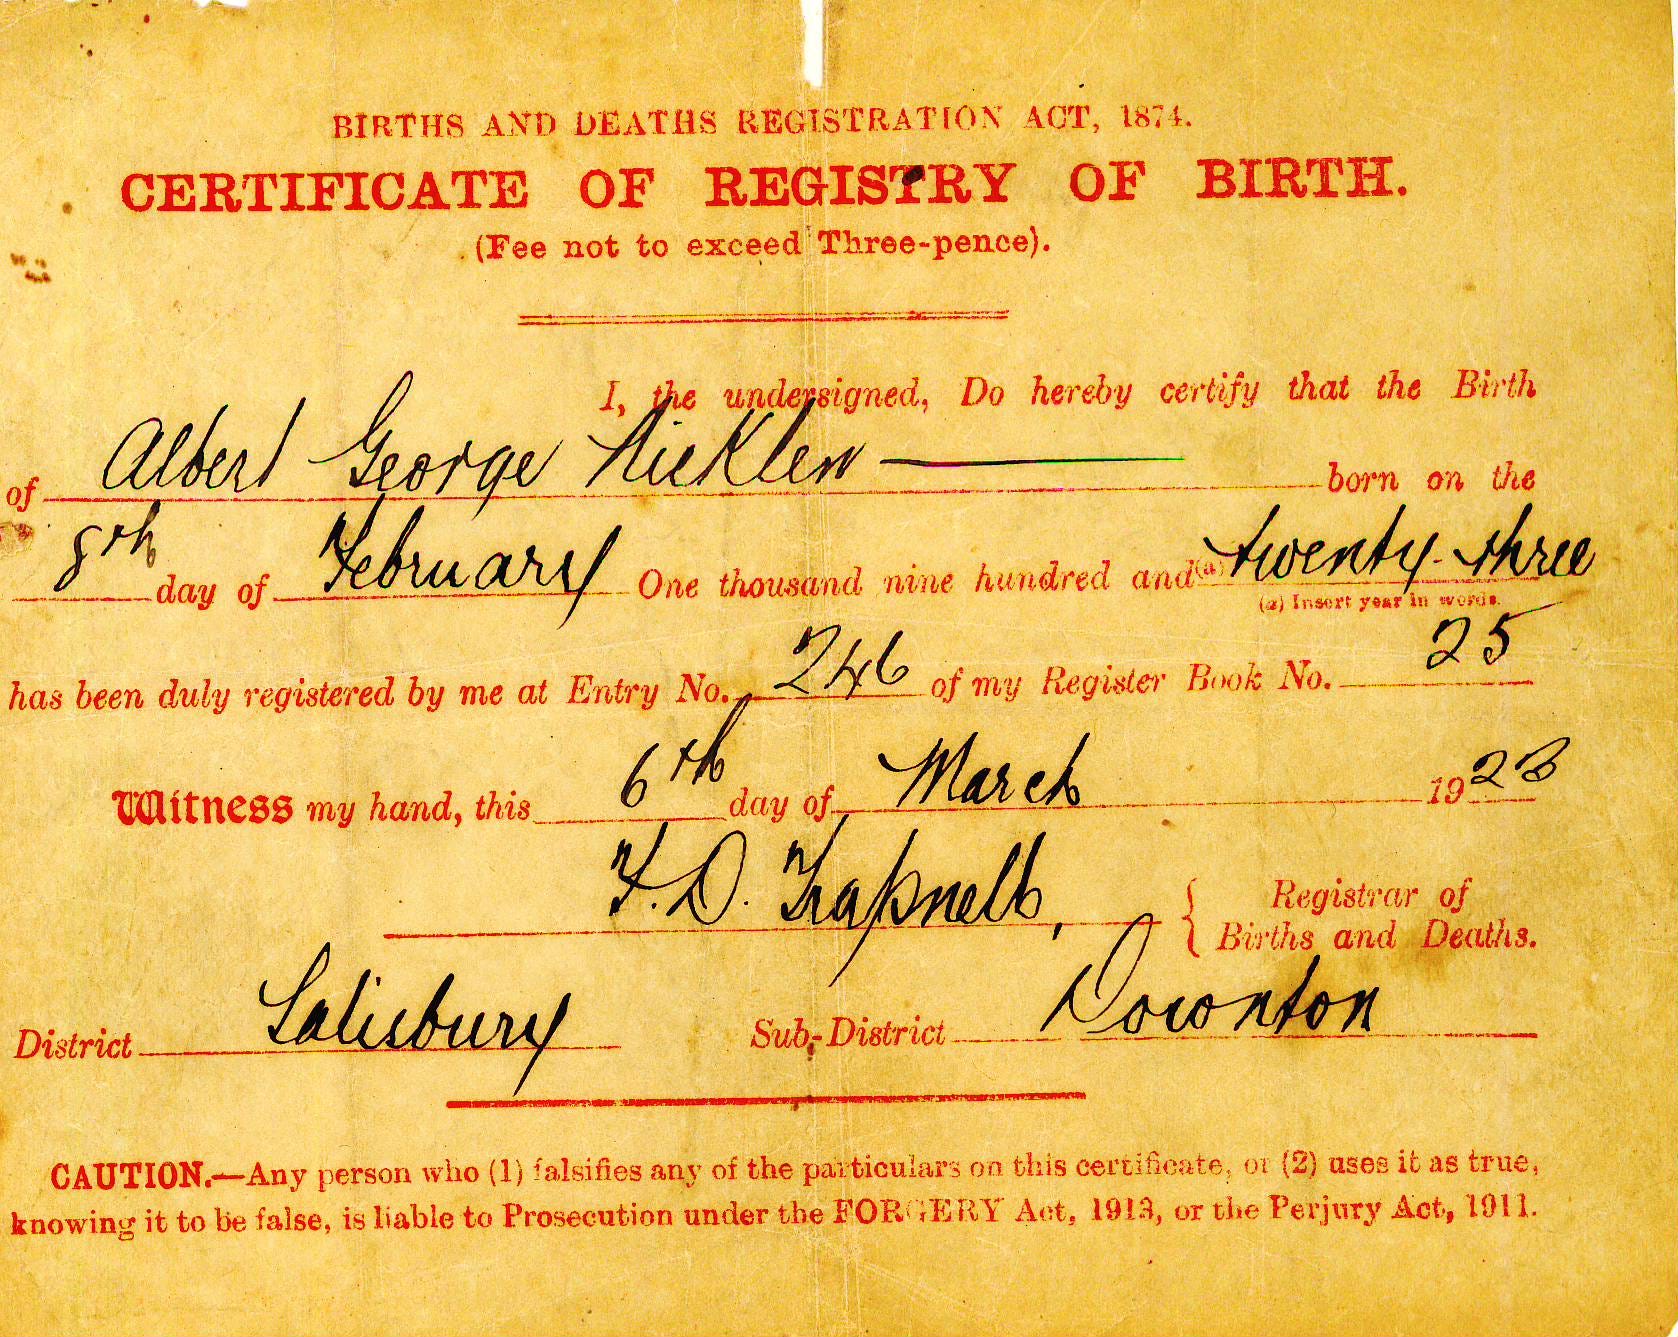 BIRTHS AND DEATHS REGISTRATION ACT, 1874.
CERTIFICATE OF REGISTRY OF BIRTH.
(Fee not to exceed Three-pence).
I, the undersigned, Do hereby certify that the Birth
of Albert George Nicklen born on the
8th day of February One thousand nine hundred and (a) twenty-three
(a) Insert year in words.
has been duly registered by me at Entry No. 246 of my Register Book No. 25
Witness my hand, this 6th day of March 1923
F. D. Trapnell, { Registrar of
Births and Deaths.
District Salisbury Sub-District Downton
CAUTION.—Any person who (1) falsifies any of the particulars on this certificate, or (2) uses it as true,
knowing it to be false, is liable to Prosecution under the FORGERY Act, 1913, or the Perjury Act, 1911.